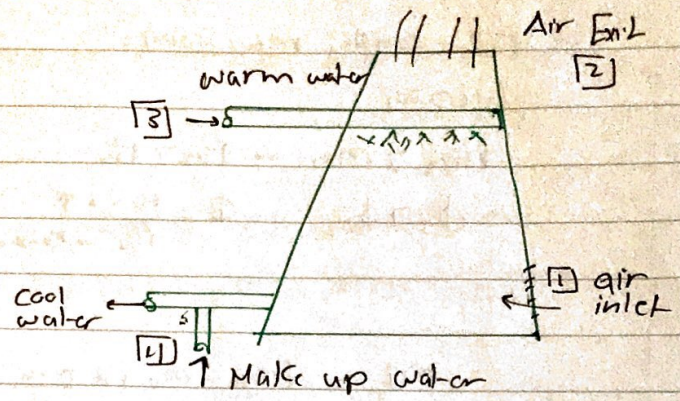 Air Exit
2
warm water
3
1 air
inlet
cool
water
4
Make up water